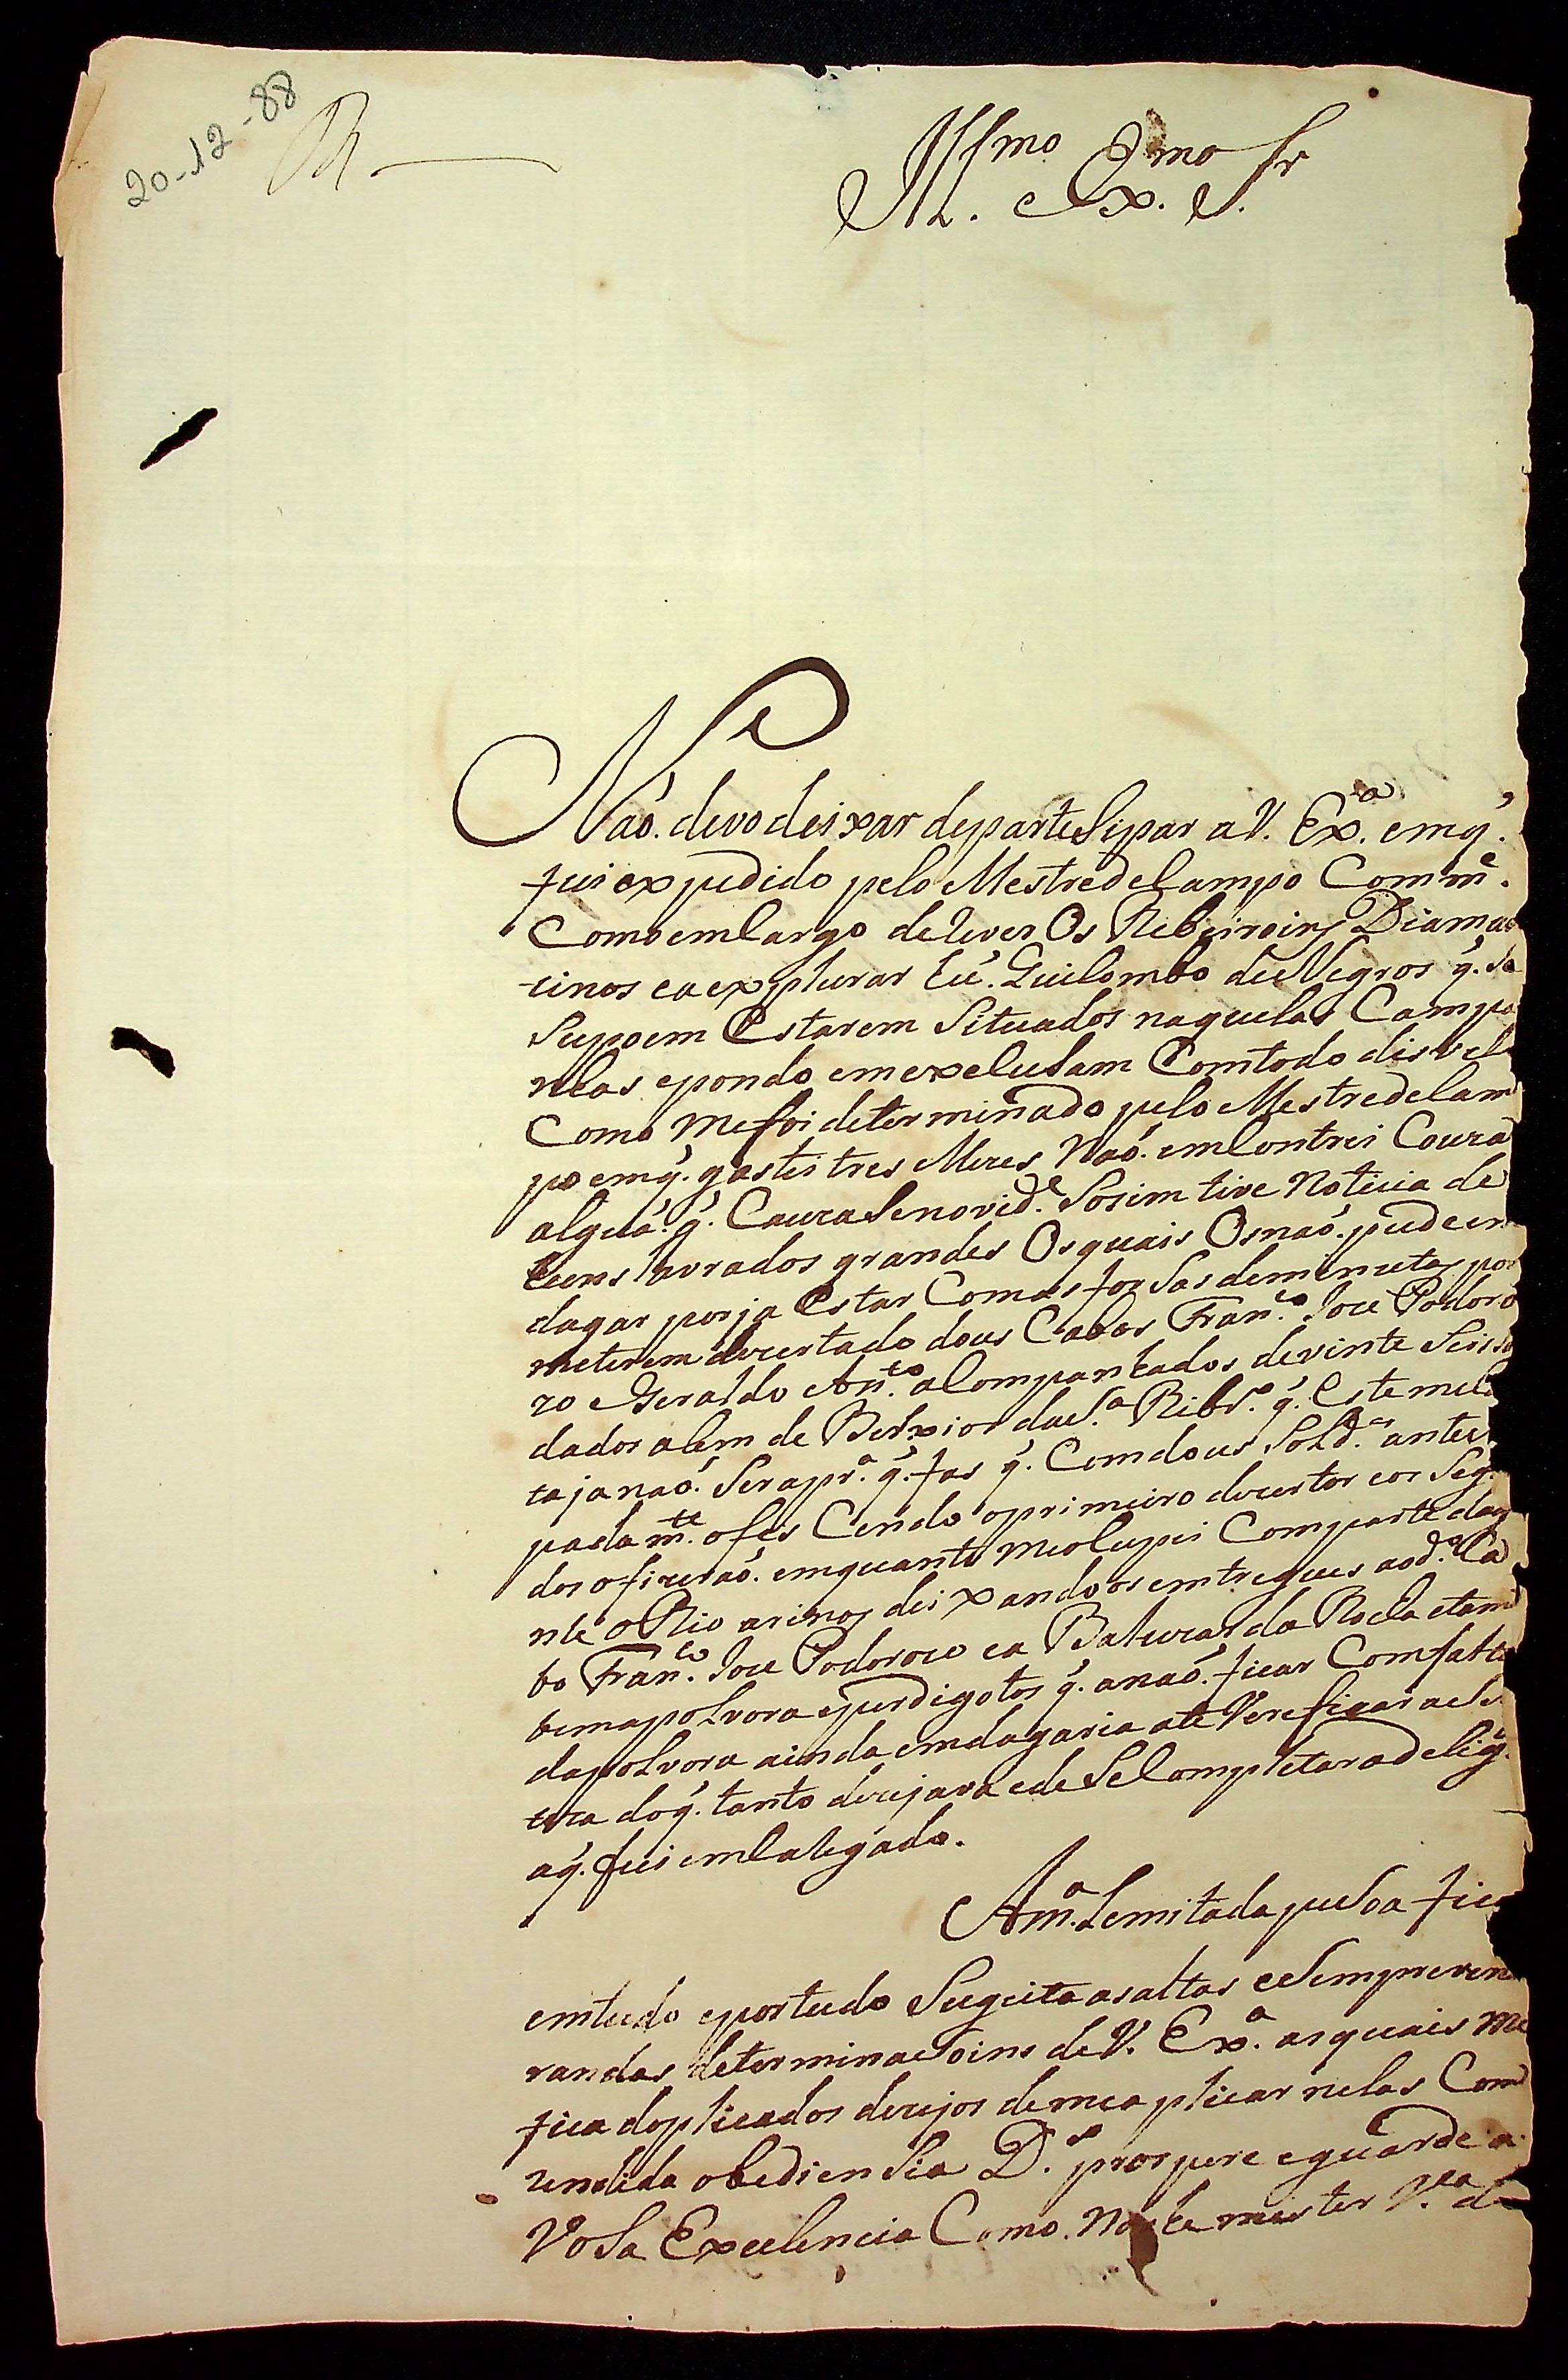 20-12-88
Ill.mo Ex.mo Sr
Naó. devo deixar departeSipar a V. Ex.a emq̃.
fui expedido pelo Mestre de Campo Comm.e
Como emCargo de Rever Os Rebeiroins Diama
tinos ea expelurar hũ. Quilombo de Negros q̃. Se
Supoem Estarem Situados naquelas Campa
nhas epondo em execuSam Com todo disvel
Como me foi determinado pelo Mestre de Cam
po emq̃. gastei tres Mezes Naó. emContrei Couza
algũa. q̃. CauzaSe novid.e Sosim tive Noticia de
huns lavrados grandes Os quais Os naó. pude en
dagar por ja Estar Com as forSas demenutas por
meterem dezertado dous Cabos Fran.co Joze Podoro
zo e Geraldo An.to aCompanhados de vinte Seis So
dados alem de Belxior da S.a Ribr.o q̃. Este
ta ja naó. Sera pr.a q̃. fas q̃. Com dous Sold.os antec
padam.te o fes Cendo o primeiro dezertor eos Seg
dos o fizeraó. emquanto me oCupei Com parte da
nhe o Rio arinos deixandoos emtregues ao d.o Ca
bo Fran.co Joze Podorozo ea Baturas da Rosa etam
bem a polvora eperdigotos q̃. a naó. ficar Com falta
da polvora ainda emdagaria ate Vereficar a Se
teza do q̃. tanto dezejava ede SeCompletar a delig.
aq̃. fui emCaregado.
Am.a Lemitada peSoa fica
emtudo eportudo Sugeita as altas eSempre vene
randas determinaSoins de V. Ex.a as quais me
fica doplicados dezejos de me aplicar nelas Com
rendida obedienSia D.s prospere eguarde a
VoSa Excelencia Como. Nos he mister V.a de